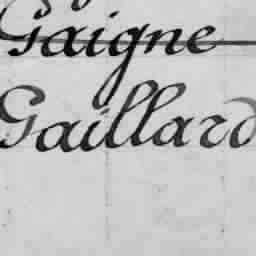 Gaigne
Gaillard